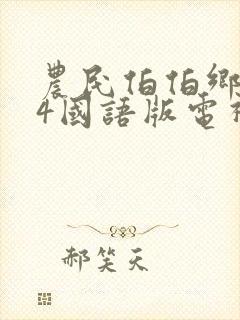 農民伯伯鄉
4國語版電視
郝笑天